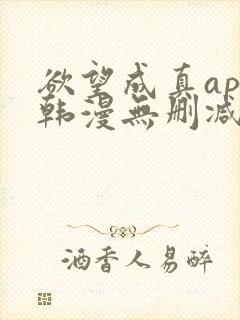 欲望成真ap
韩漫無删减
酒香人易醉